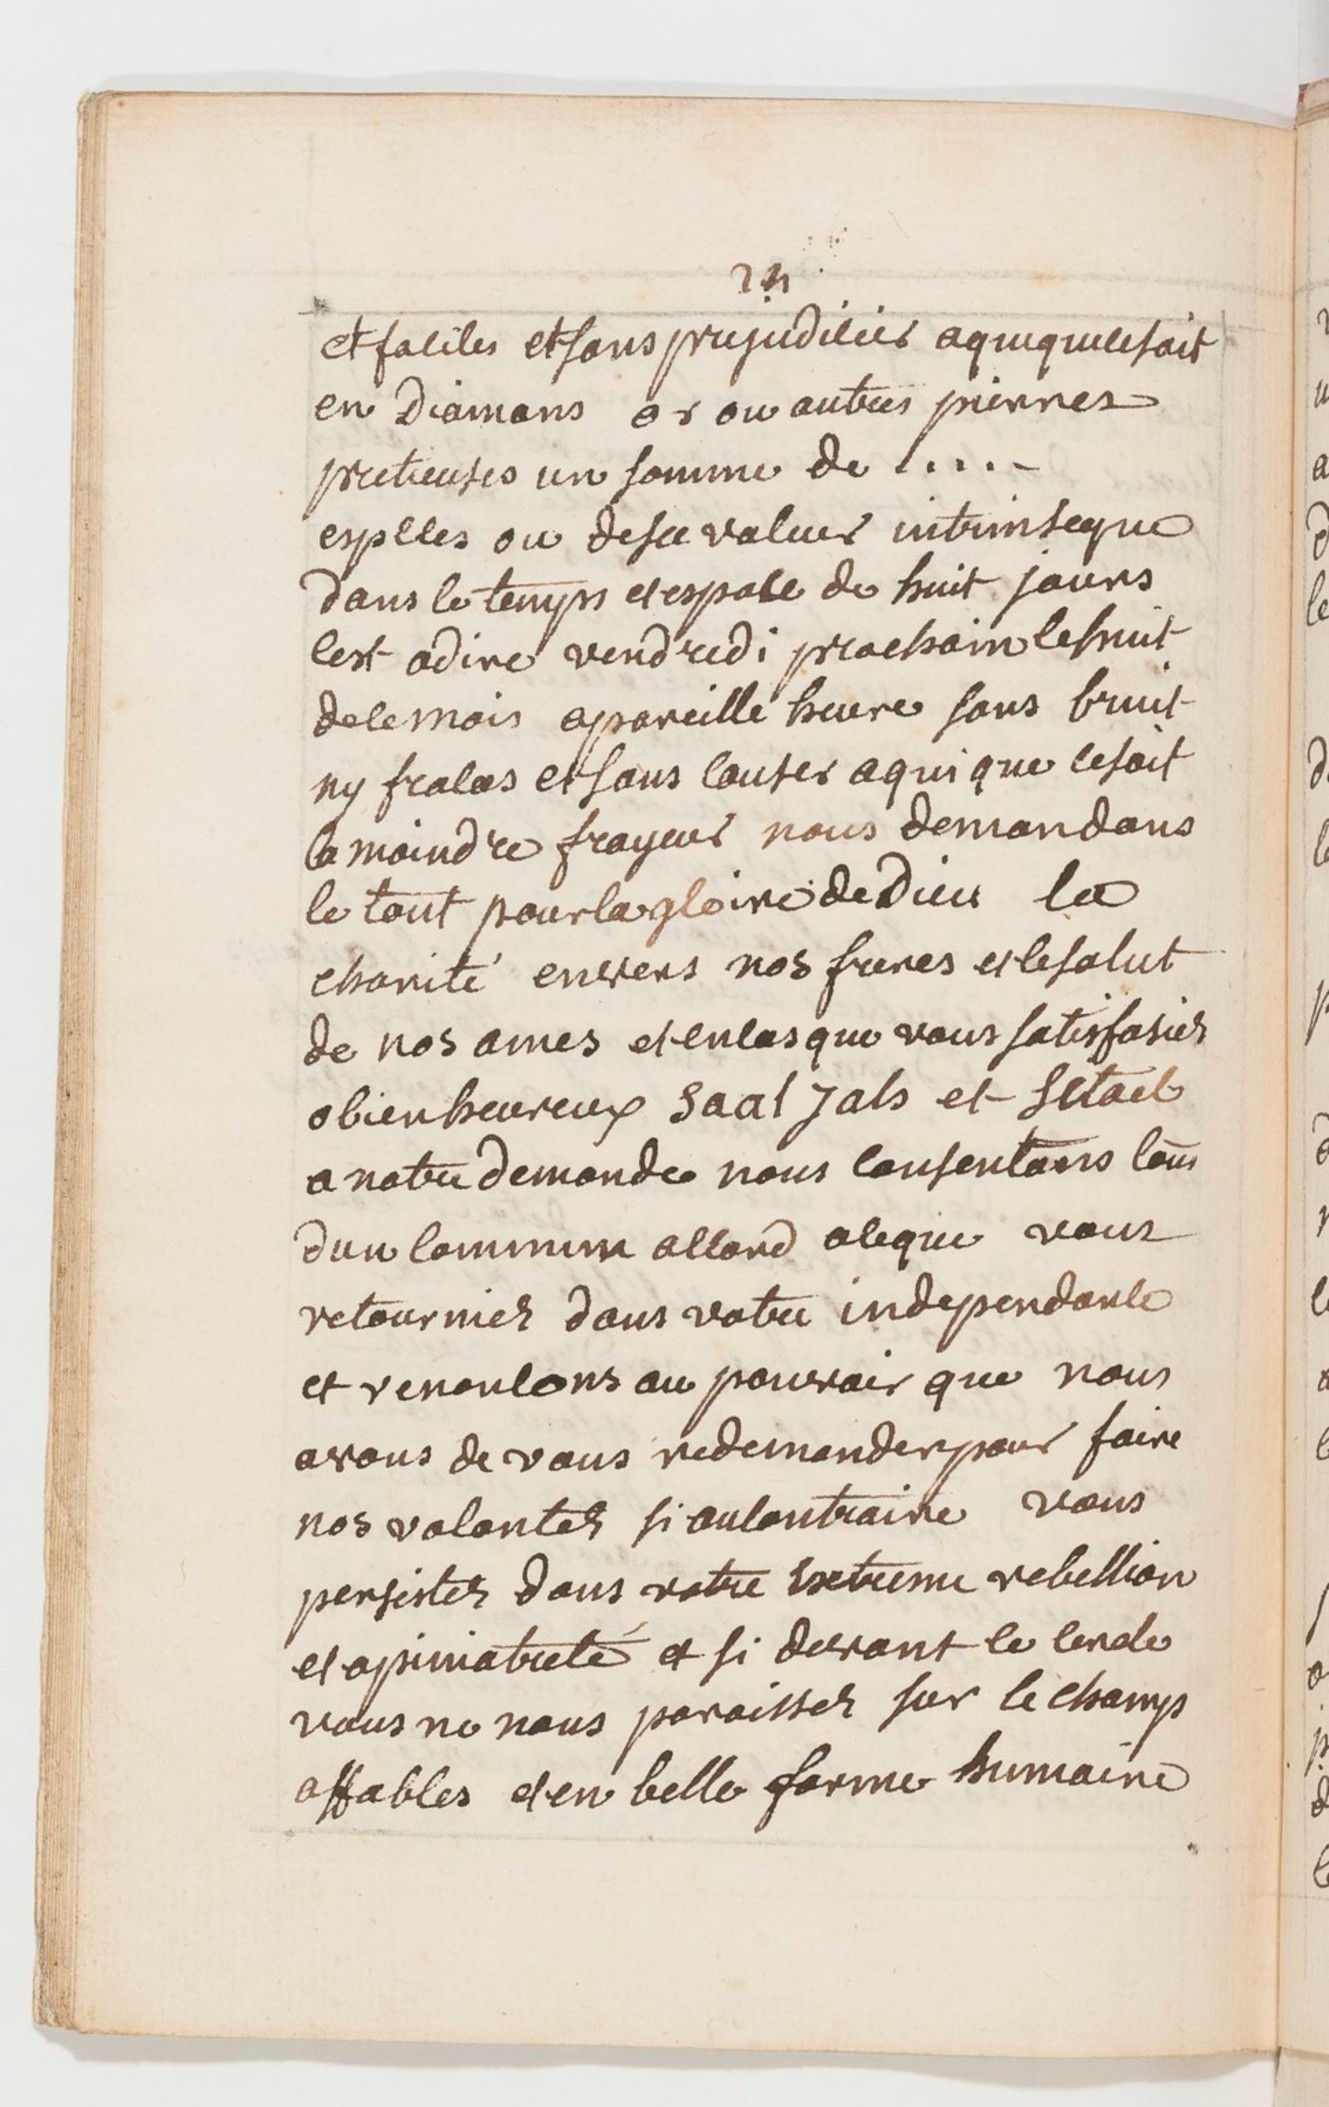 24
et faciles et sans prejudicier a quique ce soit
en Diamans or ou autres pierres
pretieuses un somme de .....
especes ou de sa valeur intrinseque
dans le temps et espace de huit jours
cest adire vendredi prochain le huit
de ce mois a pareille heure sans bruit
ny fracas et sans causer a qui que ce soit
la moindre frayeur nous demandons
le tout pour la gloire de Dieu la
charité envers nos freres et le salut
de nos ames et en cas que vous satisfasiez
o bienheureux saat Jals et
a notre demande nous consentons tous
dun commun accord a ce que vous
retourniez dans votre independance
et renoncons au pouvoir que nous
avons de vous redemander pour faire
nos volontez si au contraire vous
persistez dans votre extreme rebellion
et opiniatreté et si devant le cercle
vous ne nous paroissez sur le champ
affables et en belle forme humaine